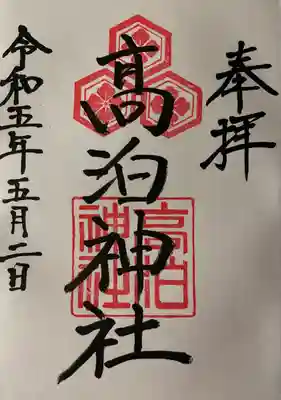 奉拝
髙泊神社
高泊神社
令和五年五月二日